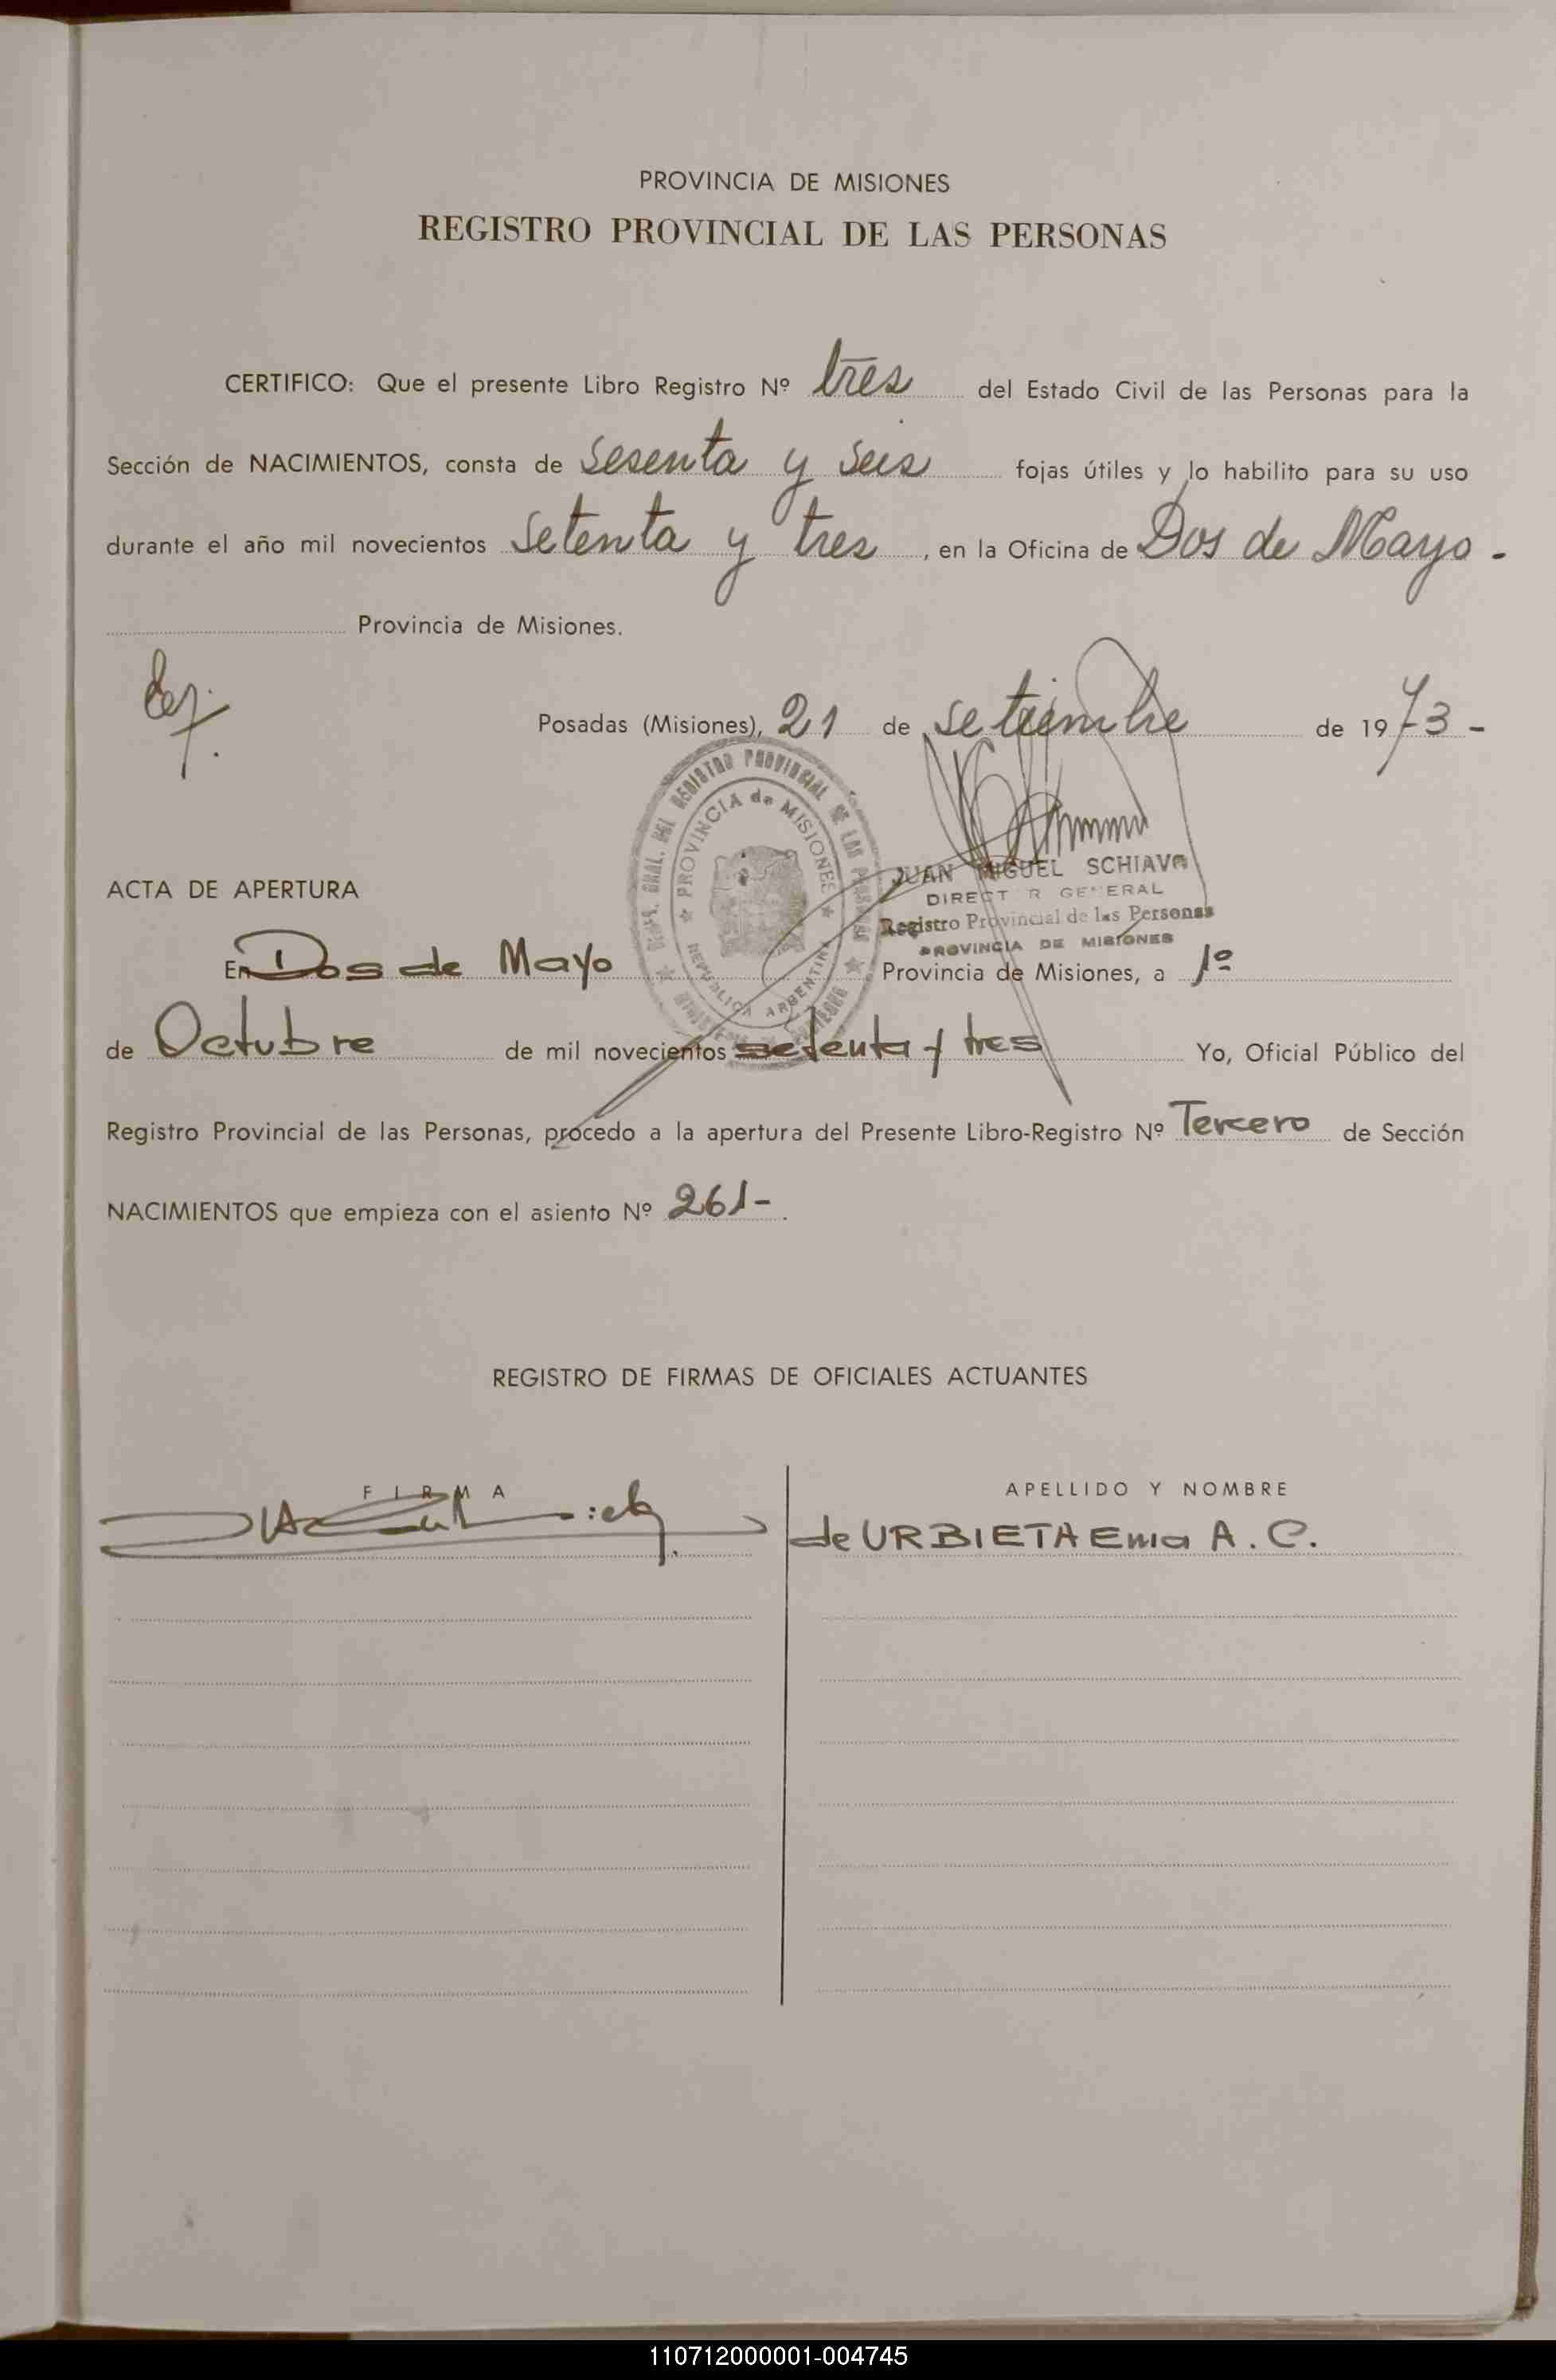 PROVINCIA DE MISIONES
REGISTRO PROVINCIAL DE LAS PERSONAS
CERTIFICO: Que el presente Libro Registro Nº tres del Estado Civil de las Personas para la
Sección de NACIMIENTOS, consta de sesenta y seis fojas útiles y lo habilito para su uso
durante el año mil novecientos setenta y tres, en la Oficina de Dos de Mayo -
Provincia de Misiones.
Posadas (Misiones), 21 de setiembre de 1973-
REGISTRO PROVINCIAL DE LAS PERSONAS
PROVINCIA de MISIONES
REPUBLICA ARGENTINA
JUAN MIGUEL SCHIAVO
DIRECT R GENERAL
Registro Provincial de las Personas
PROVINCIA DE MISIONES
ACTA DE APERTURA
En Dos de Mayo Provincia de Misiones, a 1º
de Octubre de mil novecientos setenta y tres Yo, Oficial Público del
Registro Provincial de las Personas, procedo a la apertura del Presente Libro-Registro Nº Tercero de Sección
NACIMIENTOS que empieza con el asiento Nº 261-.
REGISTRO DE FIRMAS DE OFICIALES ACTUANTES
FIRMA APELLIDO Y NOMBRE
de URBIETA Ema A. C.
110712000001-004745